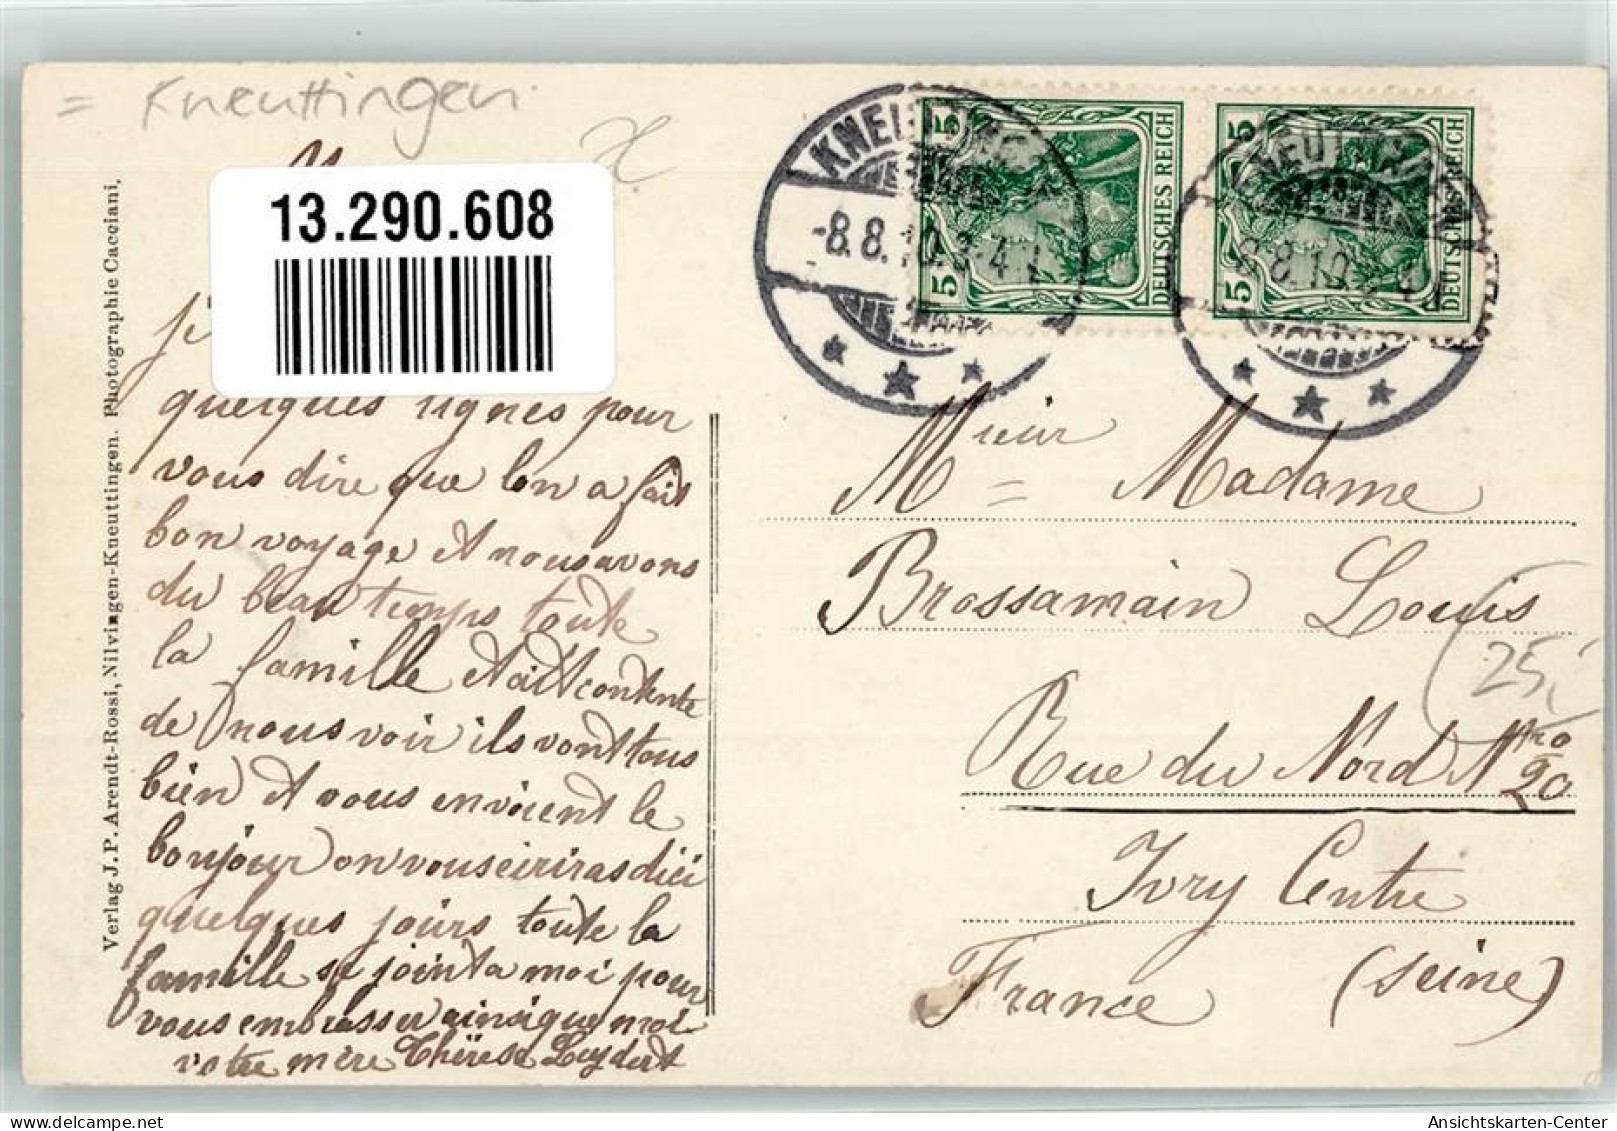 = Kneuttingen
13.290.608
quelques lignes pour
vous dire que lon a fait
bon voyage et nousavons
du beau temps toute
la famille etait contente
de nous voir ils vont tous
bien et vous envoient le
bonjour on vous eirirasdici
quelques jours toute la
famille se joint a moi pour
vous embrasser ainsi que moi
votre mère Thérèse
Verlag J. P. Arendt-Rossi, Nilvingen-Kneuttingen. Photographie Cacciani,
KNEUTTINGEN
-8.8.10. 3-4
5 5 DEUTSCHES REICH
5 5 DEUTSCHES REICH
KNEUTTINGEN
8.8.10
Mieur
M = Madame
Brossamain Louis
25,-
Rue du Nord Nro 20
Ivry Centre
France (Seine)
Ansichtskarten-Center